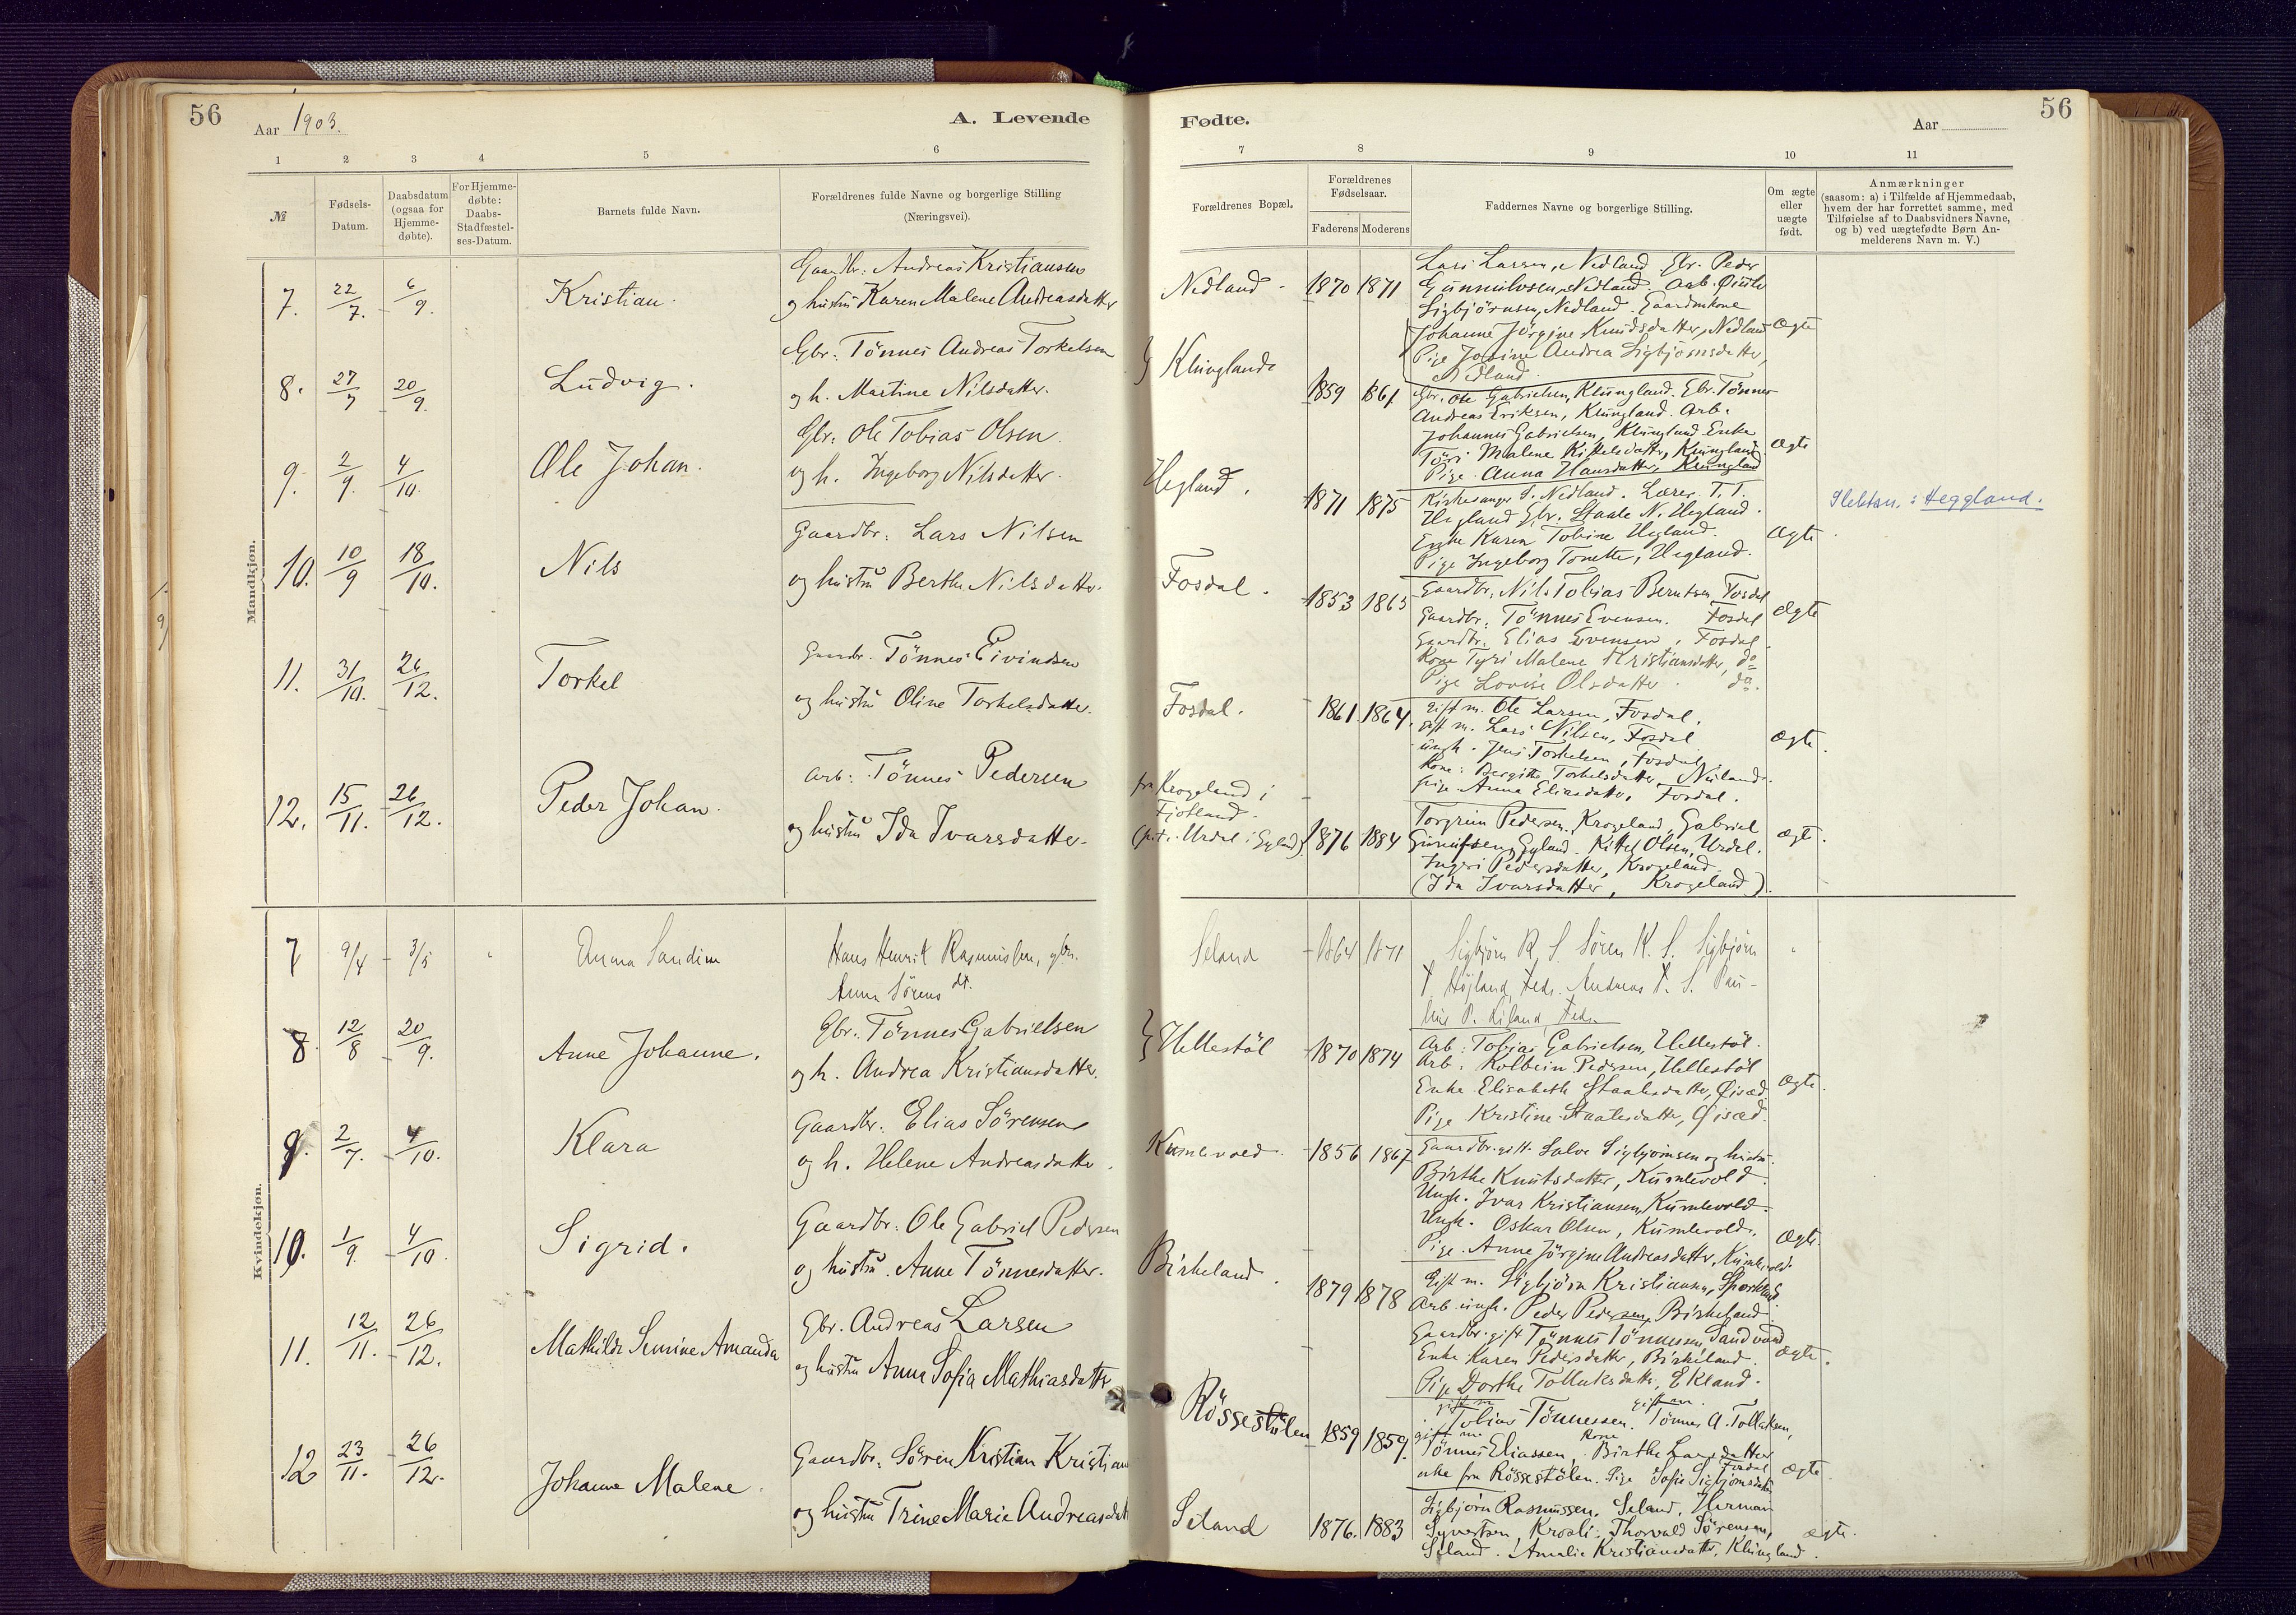 56
Aar 1903.
A. Levende
1 2 3 4 5 6
№
Fødsels-Datum.
Daabsdatum (ogsaa for Hjemme-døbte).
For Hjemme-døbte: Daabs-Stadfæstel-ses-Datum.
Barnets fulde Navn.
Forældrenes fulde Navne og borgerlige Stilling
(Næringsvei).
Mandkjøn.
7. 22/7. 6/9. Kristian.
Gaardbr: Andreas Kristiansen
og hustru Karen Malene Andreasdatter
8. 27/7 20/9. Ludvig.
Gbr: Tönnes Andreas Torkelsen
og h. Martine Nilsdatter.
9. 2/9. 4/10. Ole Johan.
Gbr: Ole Tobias Olsen
og h. Ingeborg Nilsdatter.
10. 10/9 18/10. Nils
Gaardbr: Lars Nilsen
og hustru Berthe Nilsdatter.
11. 31/10. 26/12. Torkel
Gaardbr. Tönnes Eivindsen
og hustru Oline Torkelsdatter.
12. 15/11. 26/12. Peder Johan.
Arb: Tönnes Pedersen
og hustru Ida Ivarsdatter.
Kvindekjøn.
7 9/4 3/5 Anna Sandine
Hans Henrik Rasmussen, gbr.
Anna Sörens dt.
8. 12/8 20/9. Anne Johanne.
Gbr. Tönnes Gabrielsen
og h. Andrea Kristiansdatter.
9. 2/7. 4/10. Klara
Gaardbr. Elias Sörensen
og h. Helene Andreasdatter.
10. 1/9. 4/10. Sigrid.
Gaardbr: Ole Gabriel Pedersen
og hustru. Anne Tönnesdatter.
11. 12/11. 26/12. Mathilde Semine Amanda
Gbr. Andreas Larsen
og hustru Anna Sofia Mathiasdatter
12 23/11. 26/12. Johanne Malene.
Gaardbr. Sören Kristian Kristian
og hustru Trine Marie Andreasdatt
Fødte.
Aar
56
7 8 9 10 11
Forældrenes Bopæl.
Forældrenes Fødselsaar.
Faderens Moderens
Faddernes Navne og borgerlige Stilling.
Om ægte eller uægte født.
Anmærkninger
(saasom: a) i Tilfælde af Hjemmedaab,
hvem der har forrettet samme, med
Tilføielse af to Daabsvidners Navne,
og b) ved uægtefødte Børn An-
melderens Navn m. V.)
Nedland. 1870 1871
Lars Larsen, Nedland. Gbr. Peder
Gunnulvsen, Nedland. Arb.
Sigbjörnsen, Nedland. Gaardmkone
Johanne Jörgine Knudsdatter, Nedland Ægte
Pige Andrea Sigbjörnsdatter,
Nedland.
Klungland 1859 1861
Gbr. Ole Gabrielsen, Klungland. Gbr. Tönnes
Andreas Eriksen, Klungland. Arb.
Johannes Gabrielsen, Klungland Enke
Malene Kittelsdatter, Klungland Ægte
Pige Anna Hansdatter, Klungland
Hegland. 1871 1875
Kirkesanger S. Nedland. Lærer T. T.
Hegland Gbr. Staale N. Hegland.
Enke Karen Tobine Hegland. Ægte
Pige Ingeborg Tonette, Hegland.
Slektsn.: Heggland.
Fosdal. 1853 1865
Gaardbr. Nils Tobias Berntsen Fosdal
Gaardbr. Tönnes Evensen. Fosdal Ægte
Gaardbr. Elias Evensen, Fosdal
Kone Tyri Malene Kristiansdatter, do
Pige Lovise Olsdatter do.
Fosdal. 1861 1864.
Gift m. Ole Larsen, Fosdal.
Gift m. Lars Nilsen, Fosdal Ægte.
ungk. Jens Torkelsen, Fosdal
Kone: Bergitte Torkelsdatter, Nuland.
Pige Anna Eliasdatter, Fosdal.
fra Krogeland i
Fjotland.
Urdal i Gyland). 1876 1884
Torgrim Pedersen, Krogeland, Gabriel
Gyland. Kittel Olsen, Urdal. ægt.
Ingeri Pedersdatter, Krogeland.
(Ida Ivarsdatter, Krogeland).
Seland 1864 1871
Sigbjörn R. S. Sören K. S. Sigbjörn
T. Höjland, Feds. Andreas T. S.
Hellestöl 1870 1874
Arb: Tobias Gabrielsen, Hellestöl.
Arb. Kolbein Pedersen, Hellestöl
Enke Elisabeth Staalesdatter, Øisæd Ægte.
Pige Kristine Staalesdatter, Øisæd.
Kumlevold. 1856 1867
Gaardbr. gift Salve Sigbjörnsen og hustru
Birthe Knutsdatter, Kumlevold.
Ungk. Ivar Kristiansen, Kumlevold.
Ungk. Oskar Olsen, Kumlevold. Ægte.
Pige Anne Jörgine Andreasdatter, Kumlevold.
Birkeland. 1879 1878
Gift m. Sigbjörn Kristiansen,
Arb. ungk. Peder Pedersen, Birkeland.
Gaardbr. gift Tönnes Tönnessen, Sandvand Ægte.
Enke Karen Pedersdatter, Birkeland.
Pige Dorthe Tollaksdatter, Ekland.
Rössestölen 1859 1859.
gift m gift m.
Tobias Tönnessen. Tönnes A. Tollaksen,
gift m Kone
Tönnes Eliassen, Birthe Larsdatter
fra Rössestölen. Pige Sofie Sigbjörnsdatter Fosdal ægte
Seland 1876. 1883
Sigbjörn Rasmussen, Seland, Herman
Syvertsen, Krosli. Thorvald Sörensen, ægte.
Seland. Amalie Kristiansdatter, Klungland.